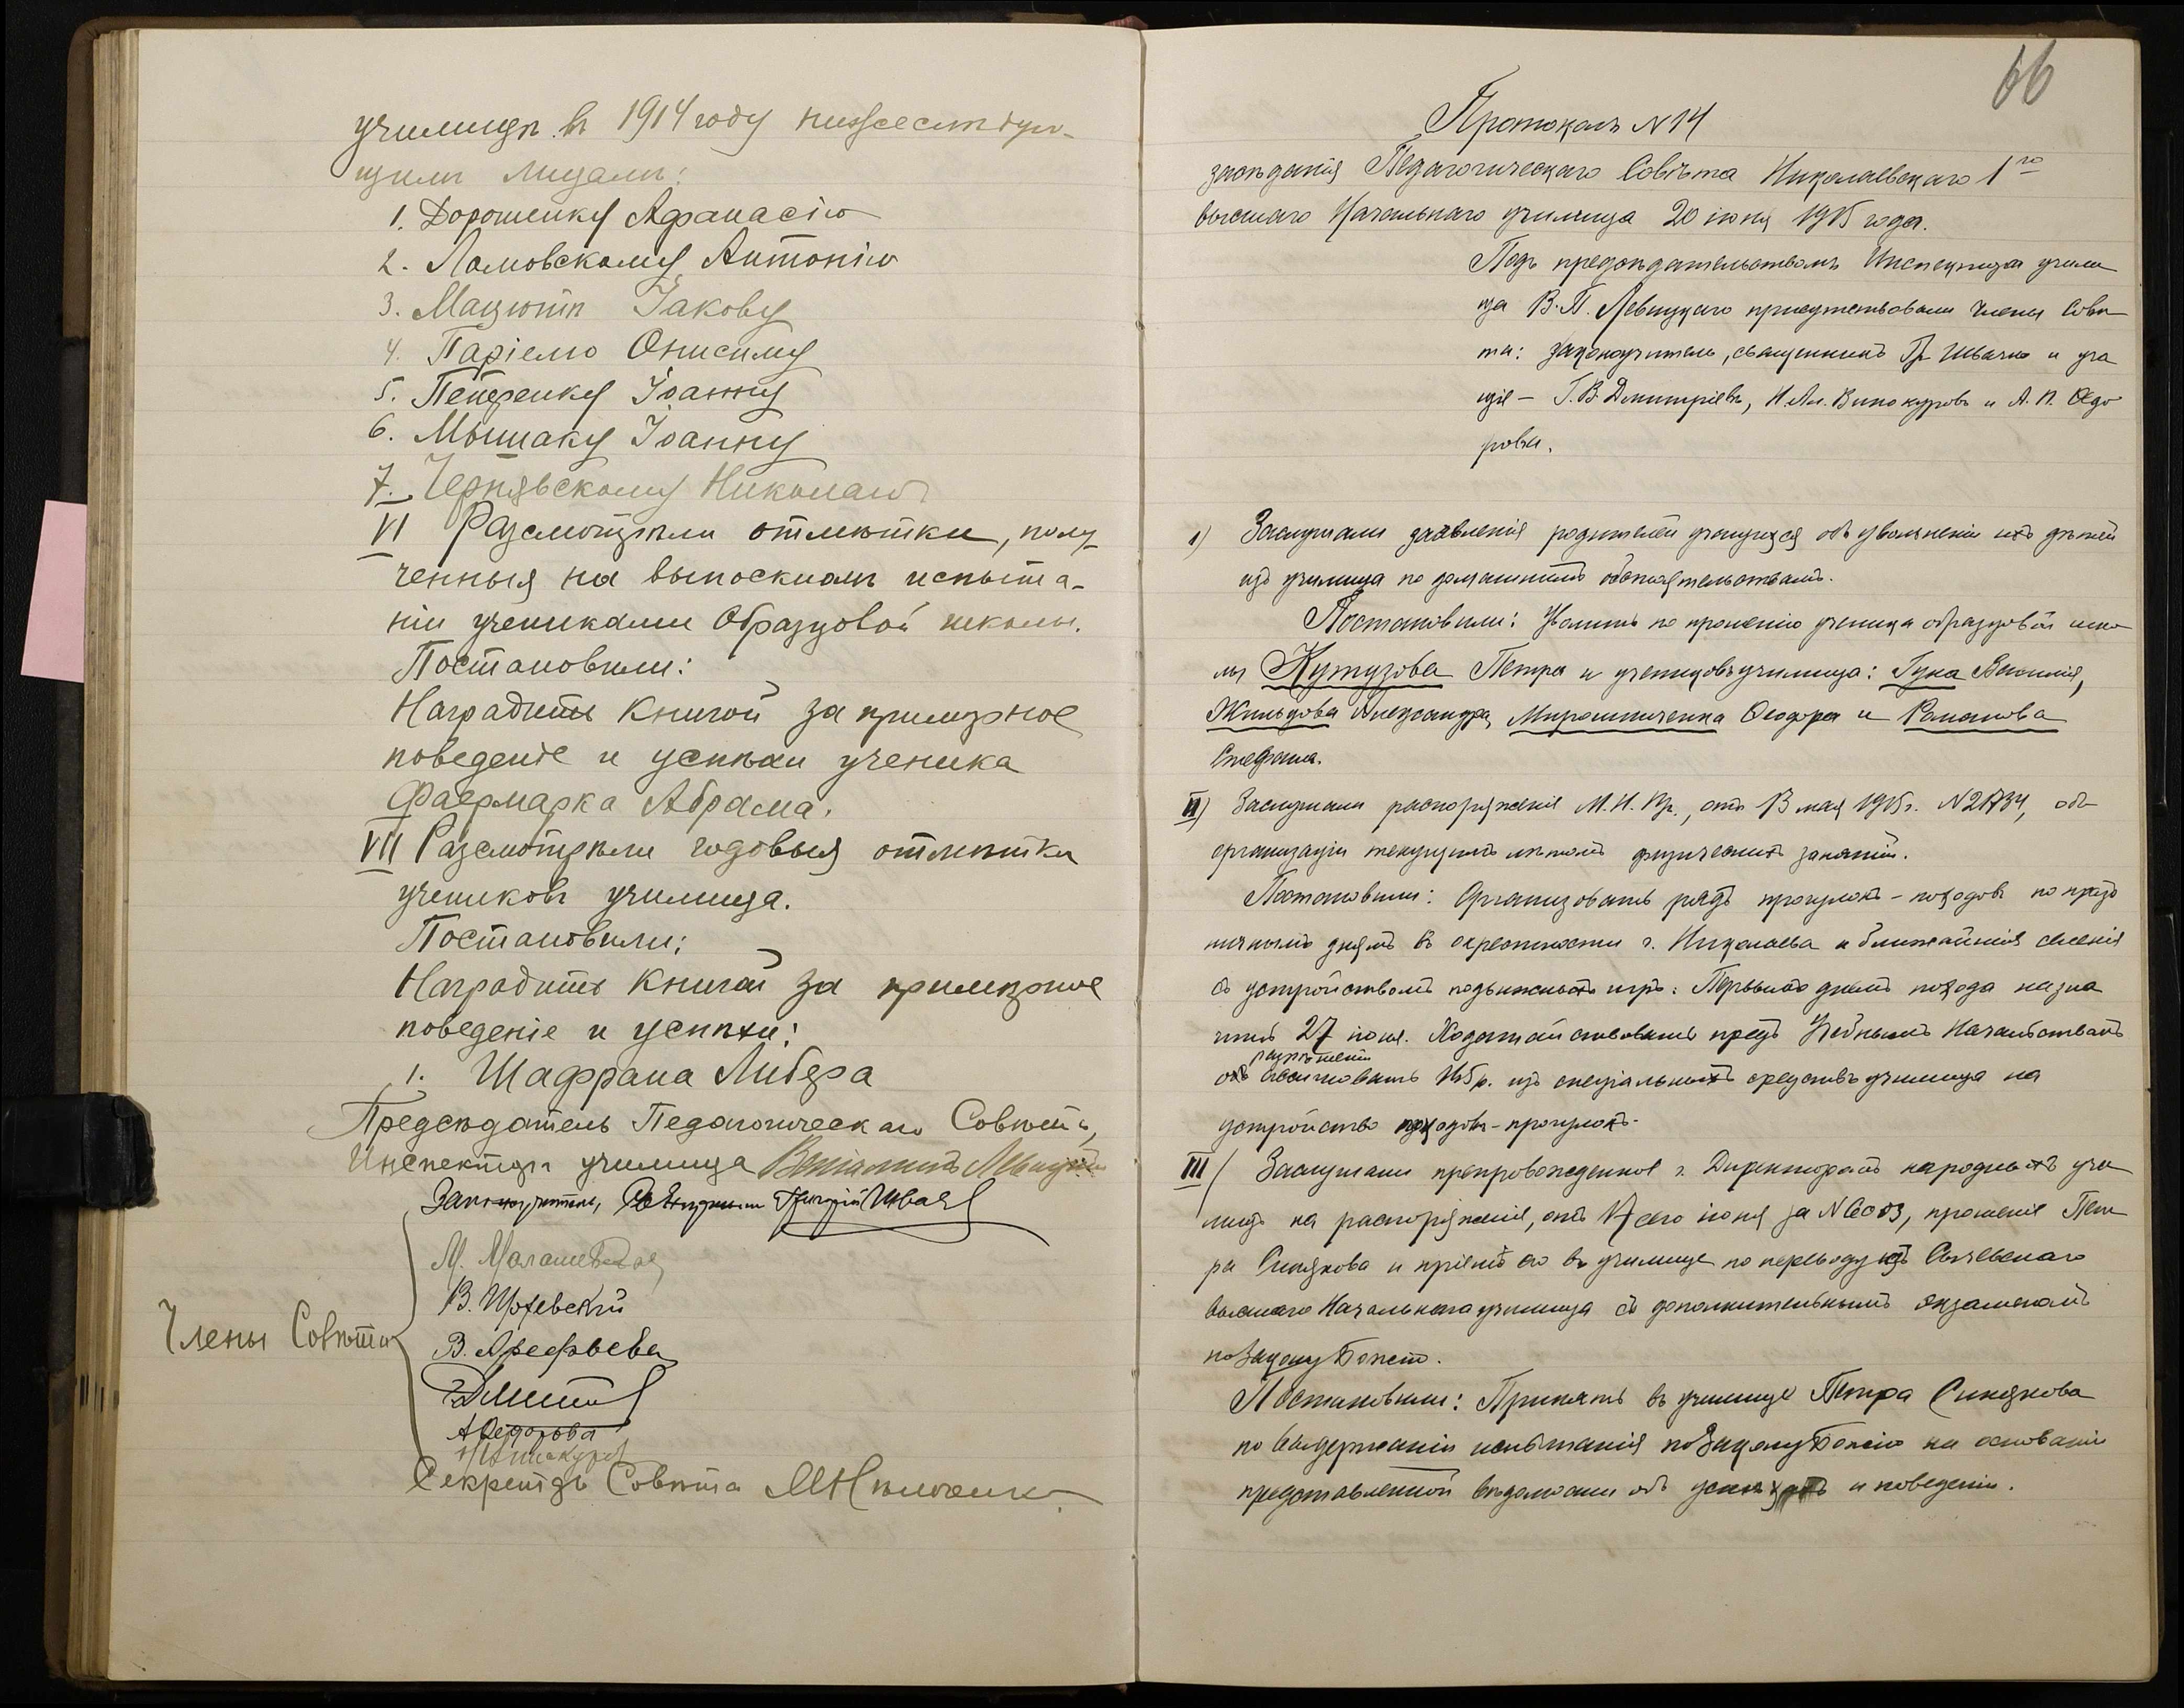 училищѣ въ 1914 году нижеслѣдую-
щимъ лицамъ:
1. Дорошенку Афанасію
2. Ламовскому Антонію
3. Мацютѣ Іакову
4. Паріемо Онисиму
5. Петренку Іоанну
6. Мышаку Іоанну
7. Чернявскому Николаю
VI Разсмотрѣли отмѣтки, полу-
ченныя на выпоскномъ испыта-
ніи учениками Образцовой школы.
Постановили:
Наградить книгой за примѣрное
поведеніе и успѣхи ученика
Фаермарка Абрама.
VII Разсмотрѣли годовыя отмѣтки
учениковъ училища.
Постановили:
Наградить книгой за примѣрное
поведеніе и успѣхи:
1. Шафрана Либера
Предсѣдатель Педагогическаго Совѣта,
Инспекторъ училища Веніаминъ Левицкій
Законоучитель, Священникъ Григорій Швачко
М.
В.
В. Арефьева
Члены Совѣта
А Ѳедорова
Н Винокуровъ
Секретарь Совѣта
66
Протоколъ N 14
засѣданія Педагогическаго Совѣта Николаевскаго 1го
высшаго Начальнаго училища 20 іюня 1915 года.
Подъ предсѣдательствомъ Инспектора учили
ща В. П. Левицкаго присутствовали члены Совѣ
та: законоучитель, священникъ Гр. Швачко и уча
щіе – Г. В. Дмитріевъ, Н. Ал. Винокуровъ и А. П. Ѳедо
рова.
1) Заслушали заявленія родителей учащихся объ увольненіи ихъ дѣтей
изъ училища по домашнимъ обстоятельствамъ.
Постановили: Уволить по прошенію ученика образцовой шко
лы Кутузова Петра и учениковъ училища: Гука Василія,
Жильцова Александра, Мирошниченка Ѳеодора и Романова
Стефана.
II) Заслушали распоряженіе М. Н. Пр., отъ 13 мая 1915 г. N 21734, объ
организаціи текущимъ лѣтомъ физическихъ занятій.
Постановили: Организовать рядъ прогулокъ – походовъ по празд
ничнымъ днямъ въ окрестности г. Николаева и ближайшія селенія
съ устройствомъ подвижныхъ игръ. Первымъ днемъ похода назна
чить 27 іюня. Ходатайствовать предъ Учебнымъ Начальствомъ
разрѣшеніи
объ ассигновать р. изъ спеціальныхъ средствъ училища на
устройство походовъ – прогулокъ.
III) Заслушали препровожденное г. Директоромъ народныхъ учи
лищъ на распоряженіе, отъ 17 сего іюня за N 6003, прошеніе Пет
ра Синякова и пріемѣ его въ училище по переводу изъ Сычевскаго
высшаго Начальнаго училища съ дополнительнымъ экзаменомъ
по Закону Божію.
Постановили: Принять въ училище Петра Синякова
по выдержаніи испытанія по Закону Божію на основаніи
представленной вѣдомости объ успѣхахъ и поведеніи.